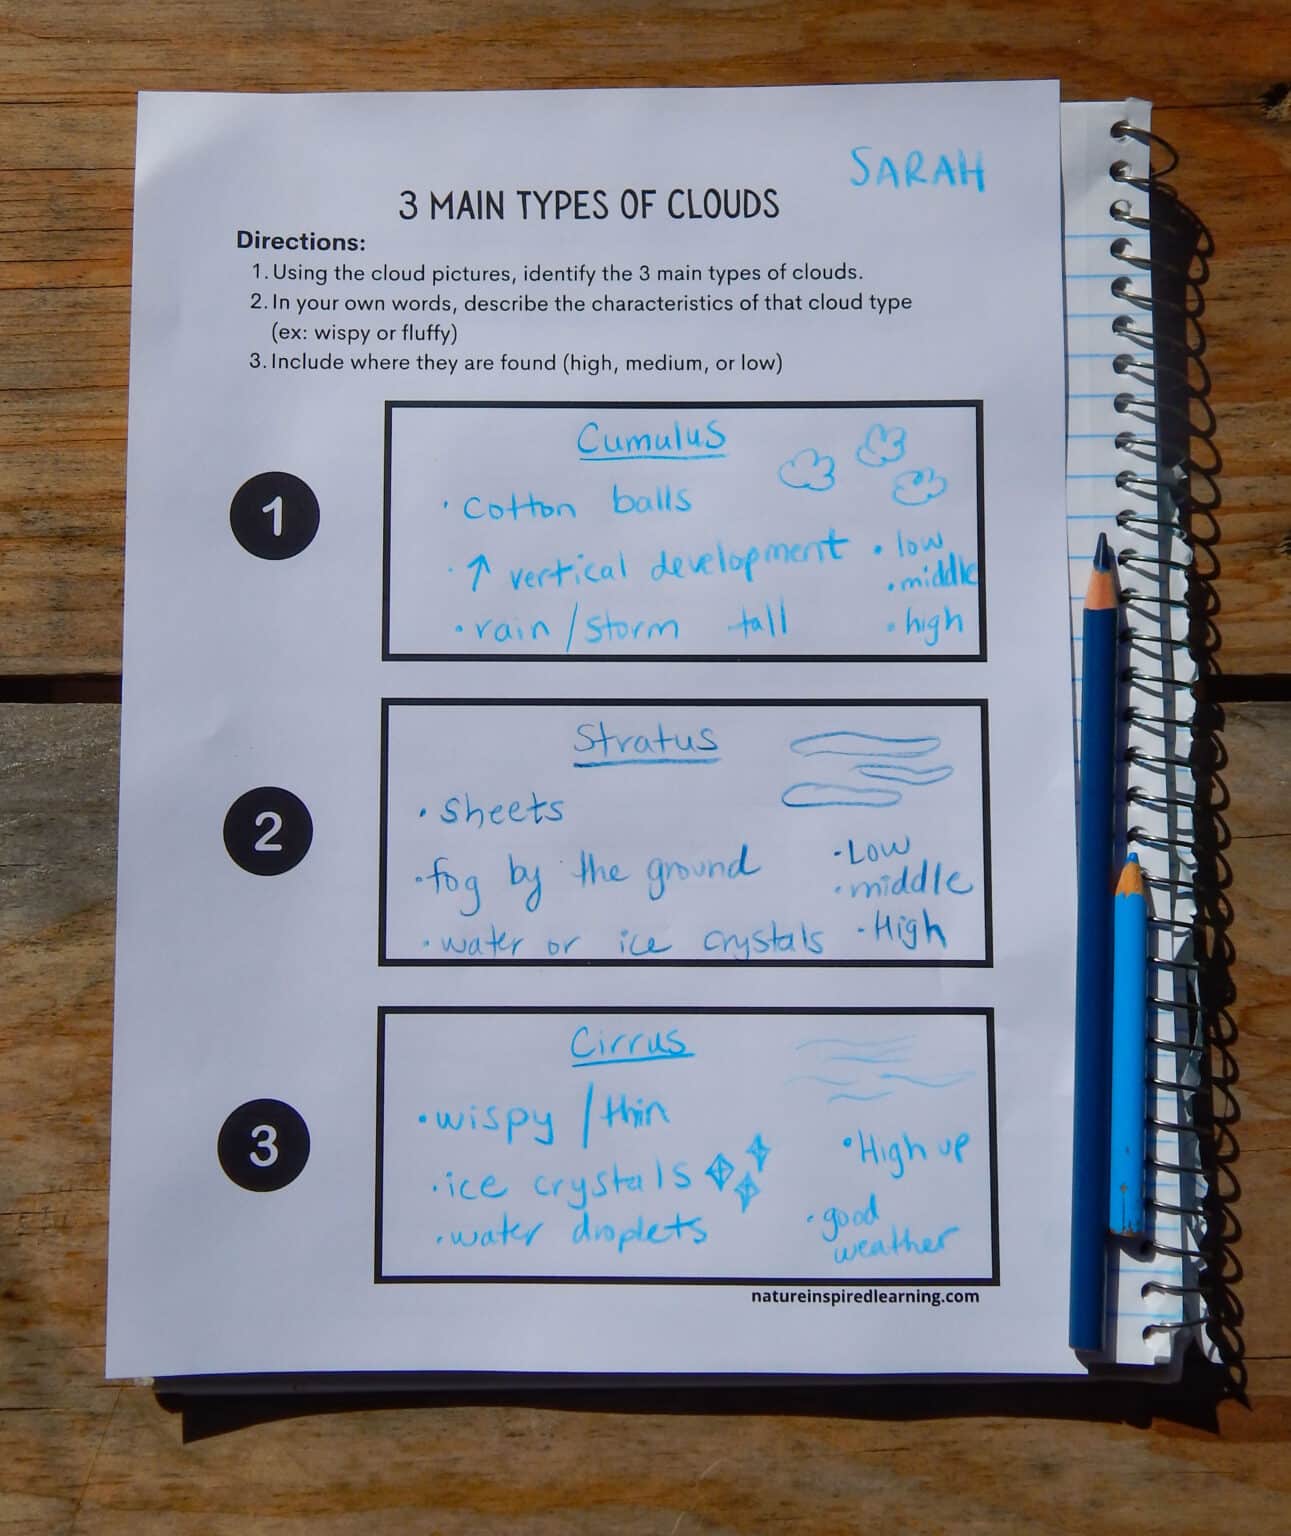 SARAH
3 MAIN TYPES OF CLOUDS
Directions:
1. Using the cloud pictures, identify the 3 main types of clouds.
2. In your own words, describe the characteristics of that cloud type
(ex: wispy or fluffy)
3. Include where they are found (high, medium, or low)
1
Cumulus
· cotton balls
· ↑ vertical development
· rain / storm tall
· low
· middle
· high
2
Stratus
· sheets
· fog by the ground
· water or ice crystals
· Low
· middle
· High
3
Cirrus
· wispy / thin
· ice crystals
· water droplets
· High up
· good
weather
natureinspiredlearning.com